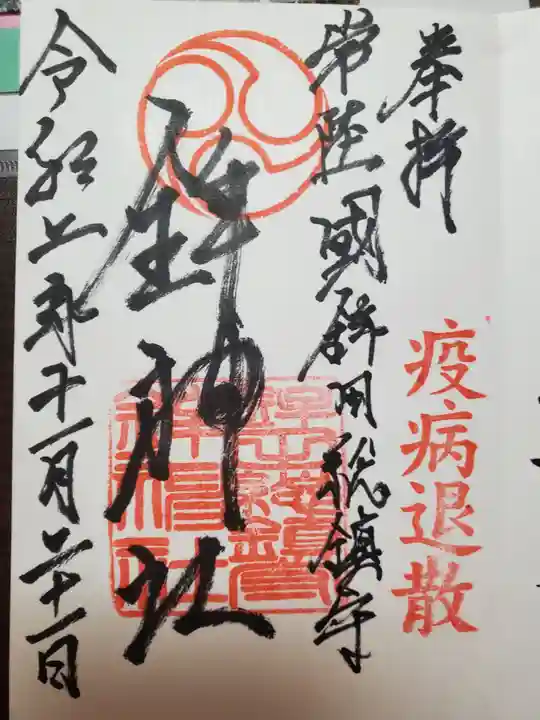 奉拝
疫病退散
常陸國鉾田総鎮守
鉾神社
令和 年十一月二十一日